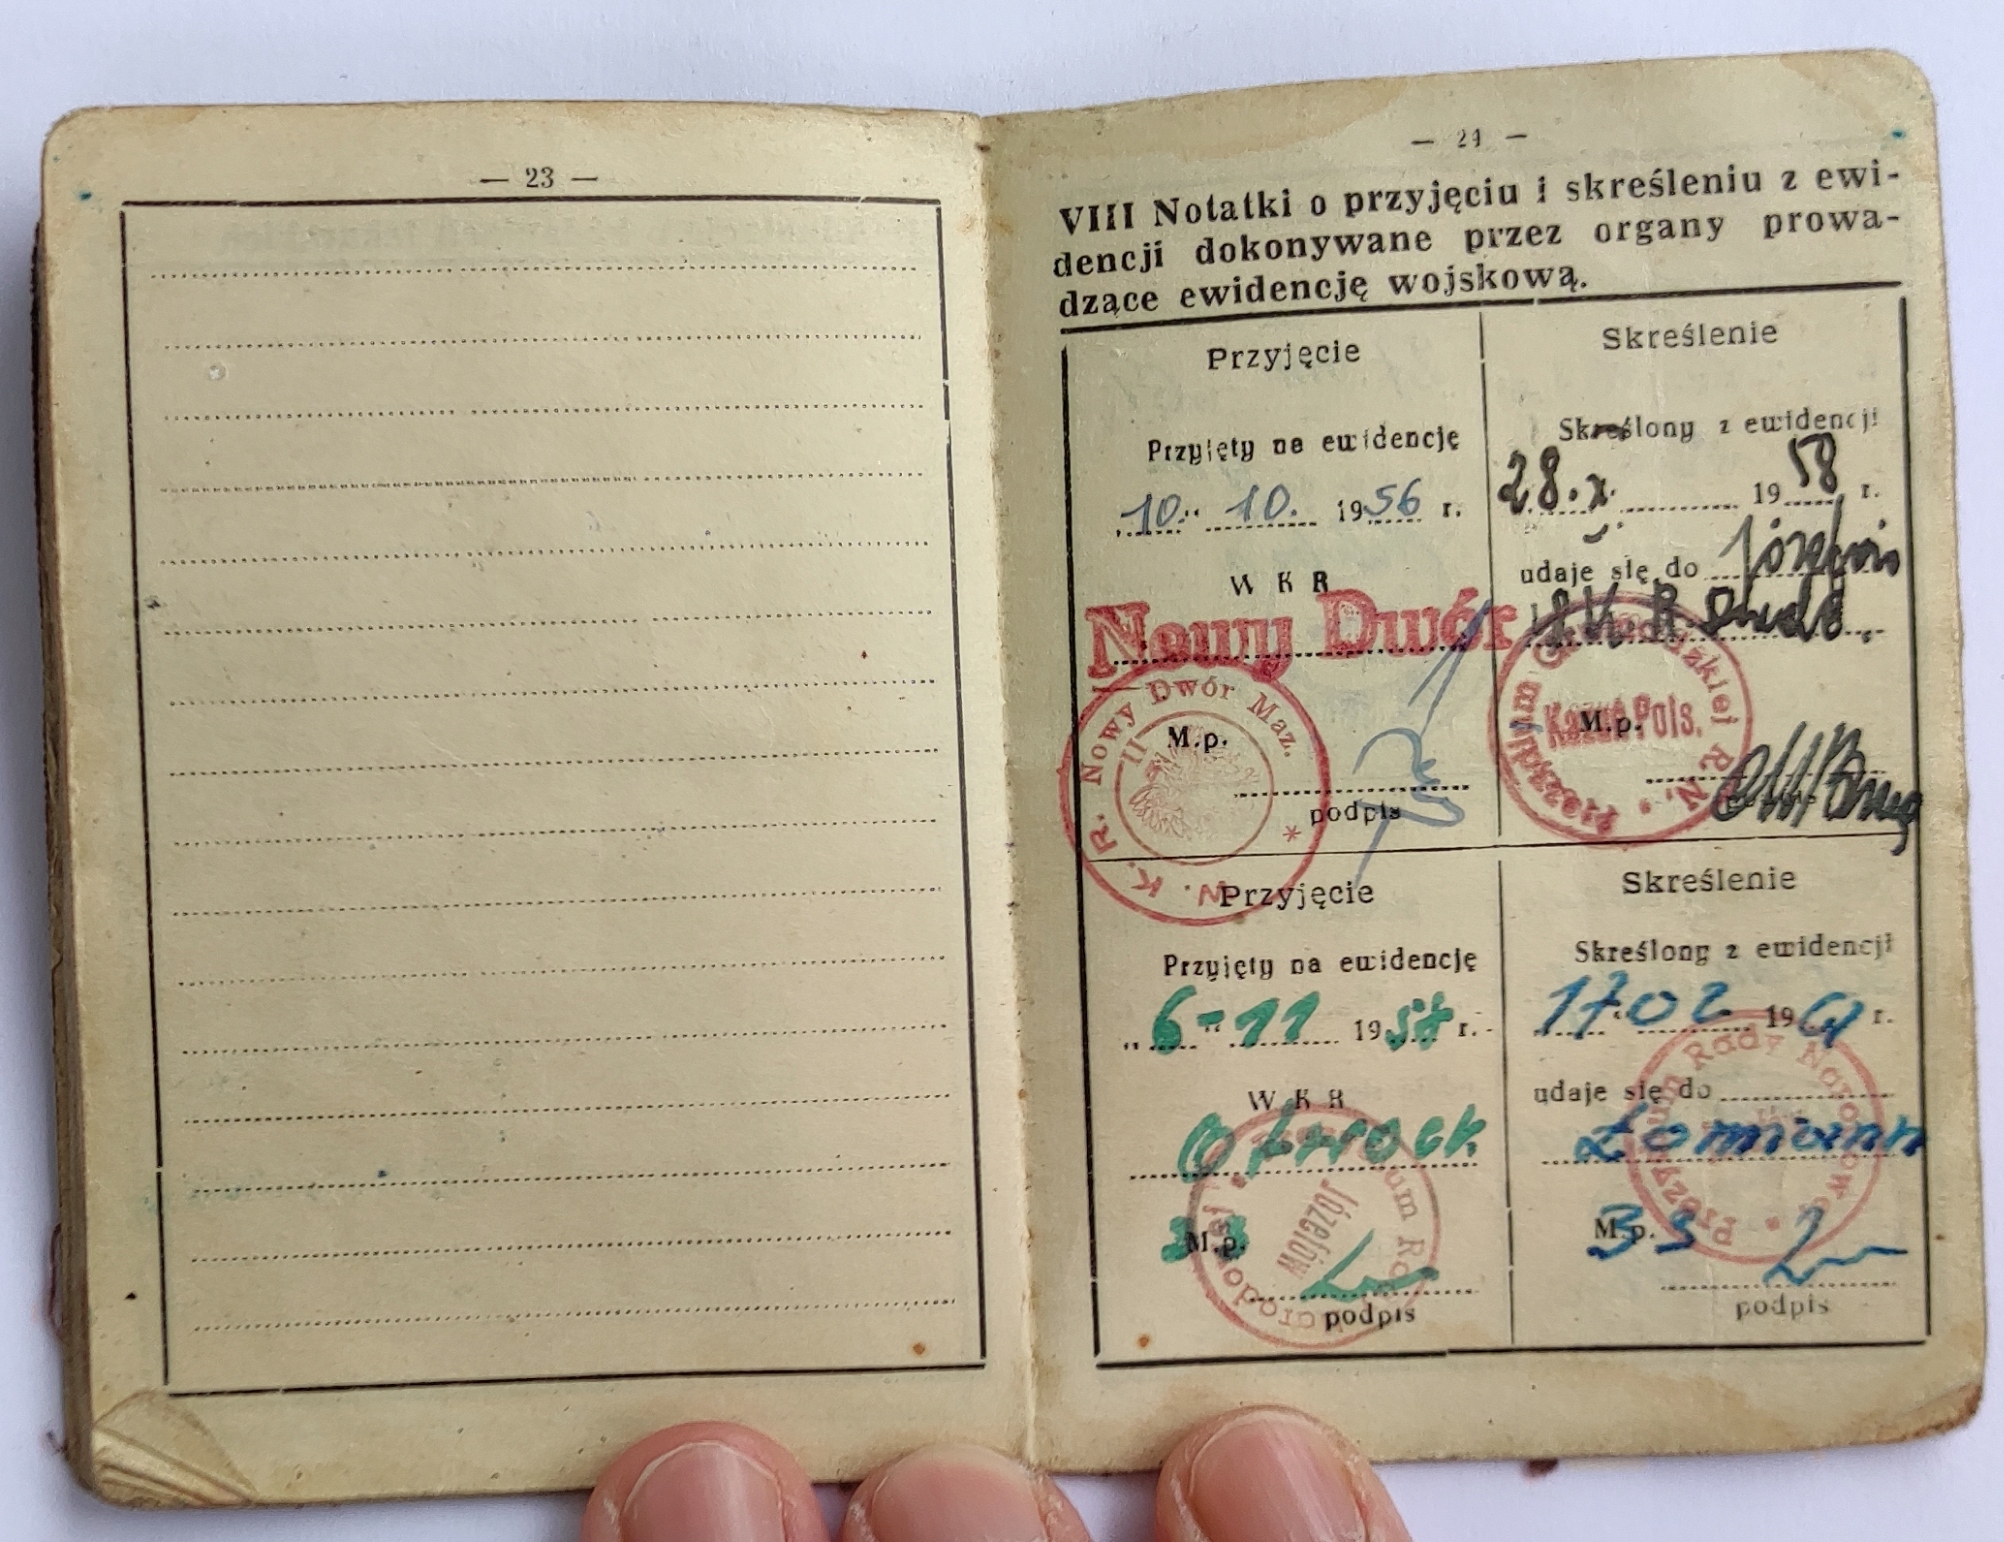 — 23 —
— 24 —
VIII Notatki o przyjęciu i skreśleniu z ewi-
dencji dokonywane przez organy prowa-
dzące ewidencję wojskową.
Przyjęcie
Przyjęty na ewidencję
10. 10. 1956 r.
W K R
Nowy Dwór
W. K. R. Nowy Dwór Maz. *
II
M.p.
podpis
Skreślenie
Skreślony z ewidencji
28. X. 1958 r.
udaje się do Józefów
Prezydium Gromadzkiej R. N.
Kazuń Pols.
M.p.
Przyjęcie
Przyjęty na ewidencję
„6-"11 1958 r.
W K R
Otwock
Prezydium Rady Narodowej
Józefów
33
M.p.
podpis
Skreślenie
Skreślony z ewidencji
17"02 1961 r.
udaje się do
Łomianki
Prezydium Rady Narodowej
M.p.
33
podpis